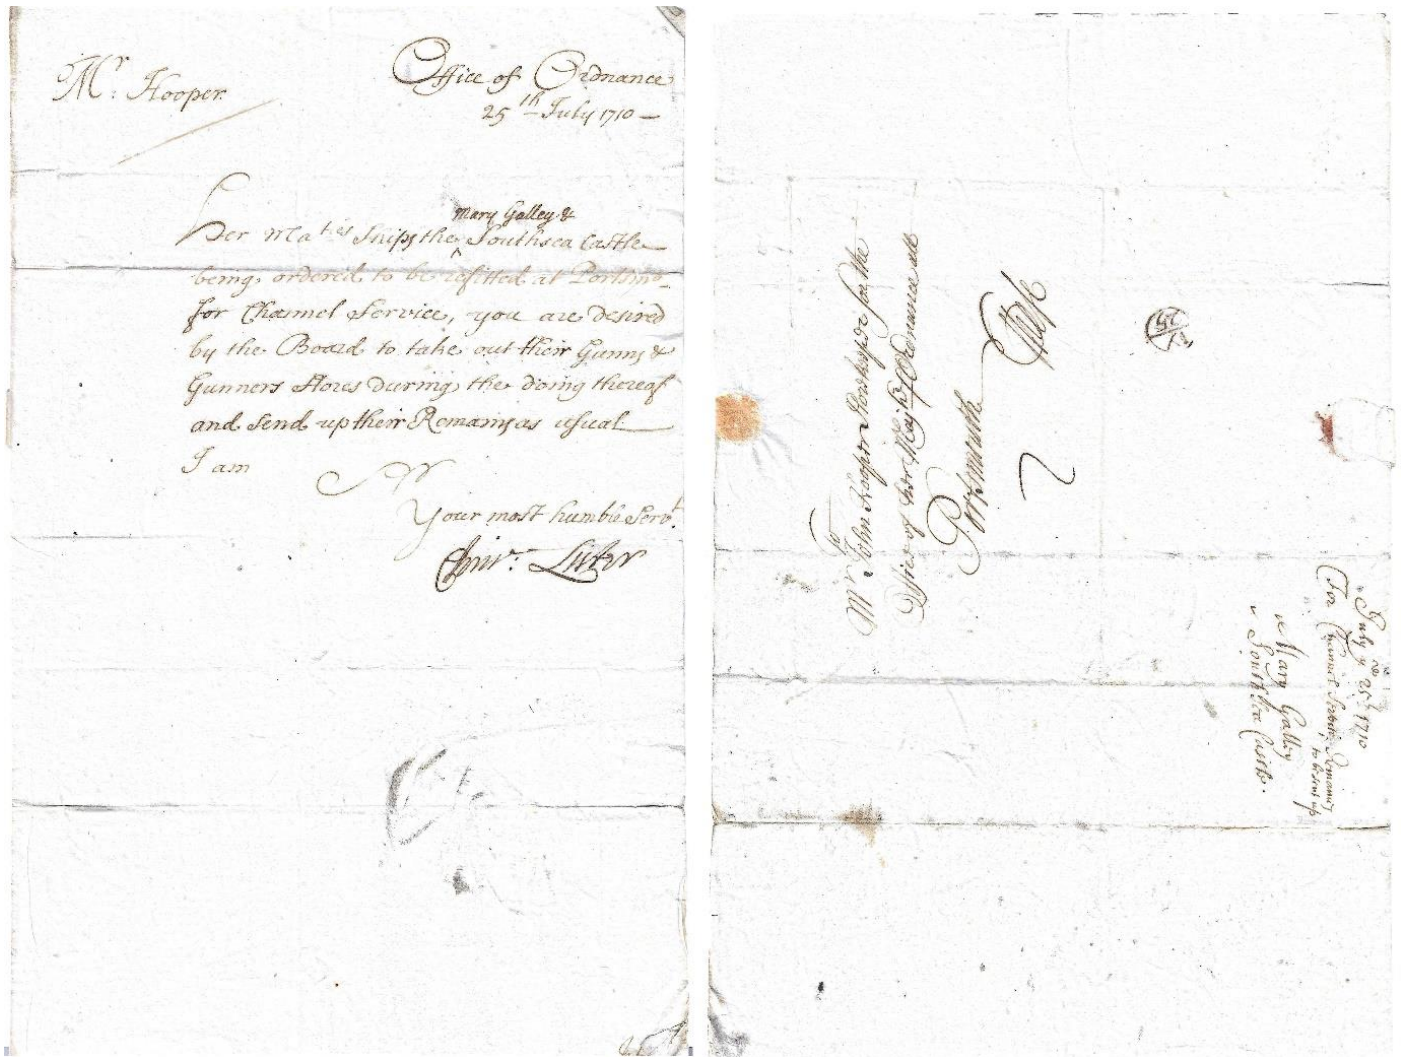 Mr. Hooper.
Office of Ordnance
25th July 1710
Mary Galley &
Her Ma.ties Ships the ^ Southsea Castle
being ordered to be refitted at Portsmo.
for Channel Service, you are desired
by the Board to take out their Gunns &
Gunners Stores during the doing thereof
and send up their Remains as usual
I am
Your most humble Servt.
Chrisr. Lister
To
Mr John Hooper Storekeeper for the
Office of her Majtys Ordnance att
Portsmouth
2
IY
25
July ye 25th 1710
For Channel Service Remains
to be sent up
Mary Galley
Southsea Castle.